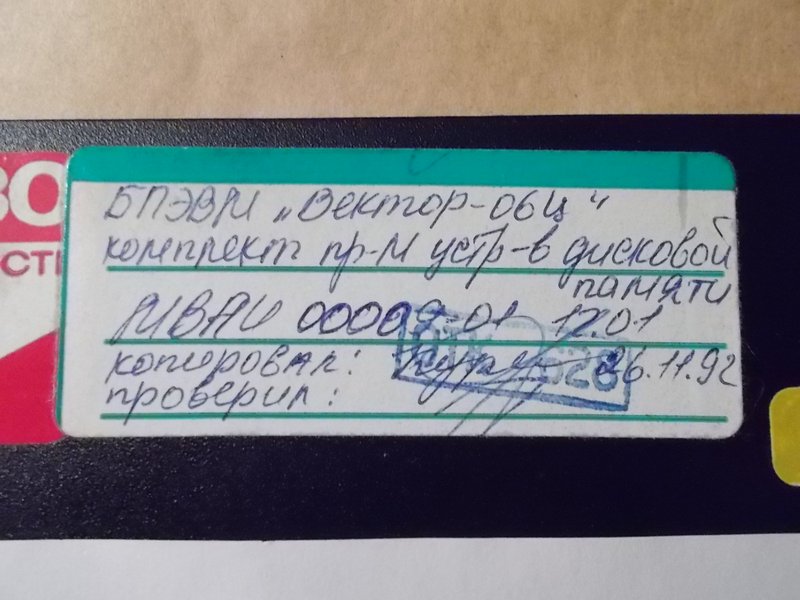 БПЭВМ „Вектор-06Ц"
комплект пр-м устр-в дисковой
памяти
МВАИ 00009-01 12.01
копировал: 26.11.92
проверил:
ОТК 528